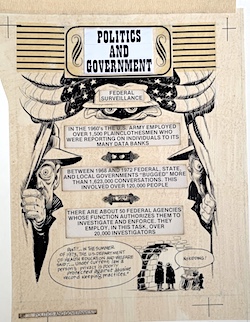 POLITICS
AND
GOVERNMENT
FEDERAL
SURVEILLANCE
IN THE 1960's THE U.S. ARMY EMPLOYED
OVER 1,500 PLAINCLOTHESMEN WHO
WERE REPORTING ON INDIVIDUALS TO ITS
MANY DATA BANKS
BETWEEN 1968 AND 1972 FEDERAL, STATE,
AND LOCAL GOVERNMENTS "BUGGED" MORE
THAN 1,623,000 CONVERSATIONS. THIS
INVOLVED OVER 120,000 PEOPLE
THERE ARE ABOUT 50 FEDERAL AGENCIES
WHOSE FUNCTION AUTHORIZES THEM TO
INVESTIGATE AND ENFORCE. THEY
EMPLOY, IN THIS TASK, OVER
20,000 INVESTIGATORS
BUT... IN THE SUMMER
OF 1973, THE U.S. DEPARTMENT
OF HEALTH EDUCATION AND WELFARE
SAID... "UNDER CURRENT LAW A
PERSON'S PRIVACY IS POORLY
PROTECTED AGAINST ABUSIVE
RECORD KEEPING PRACTICES."
POLITICS AND GOVERNMENT